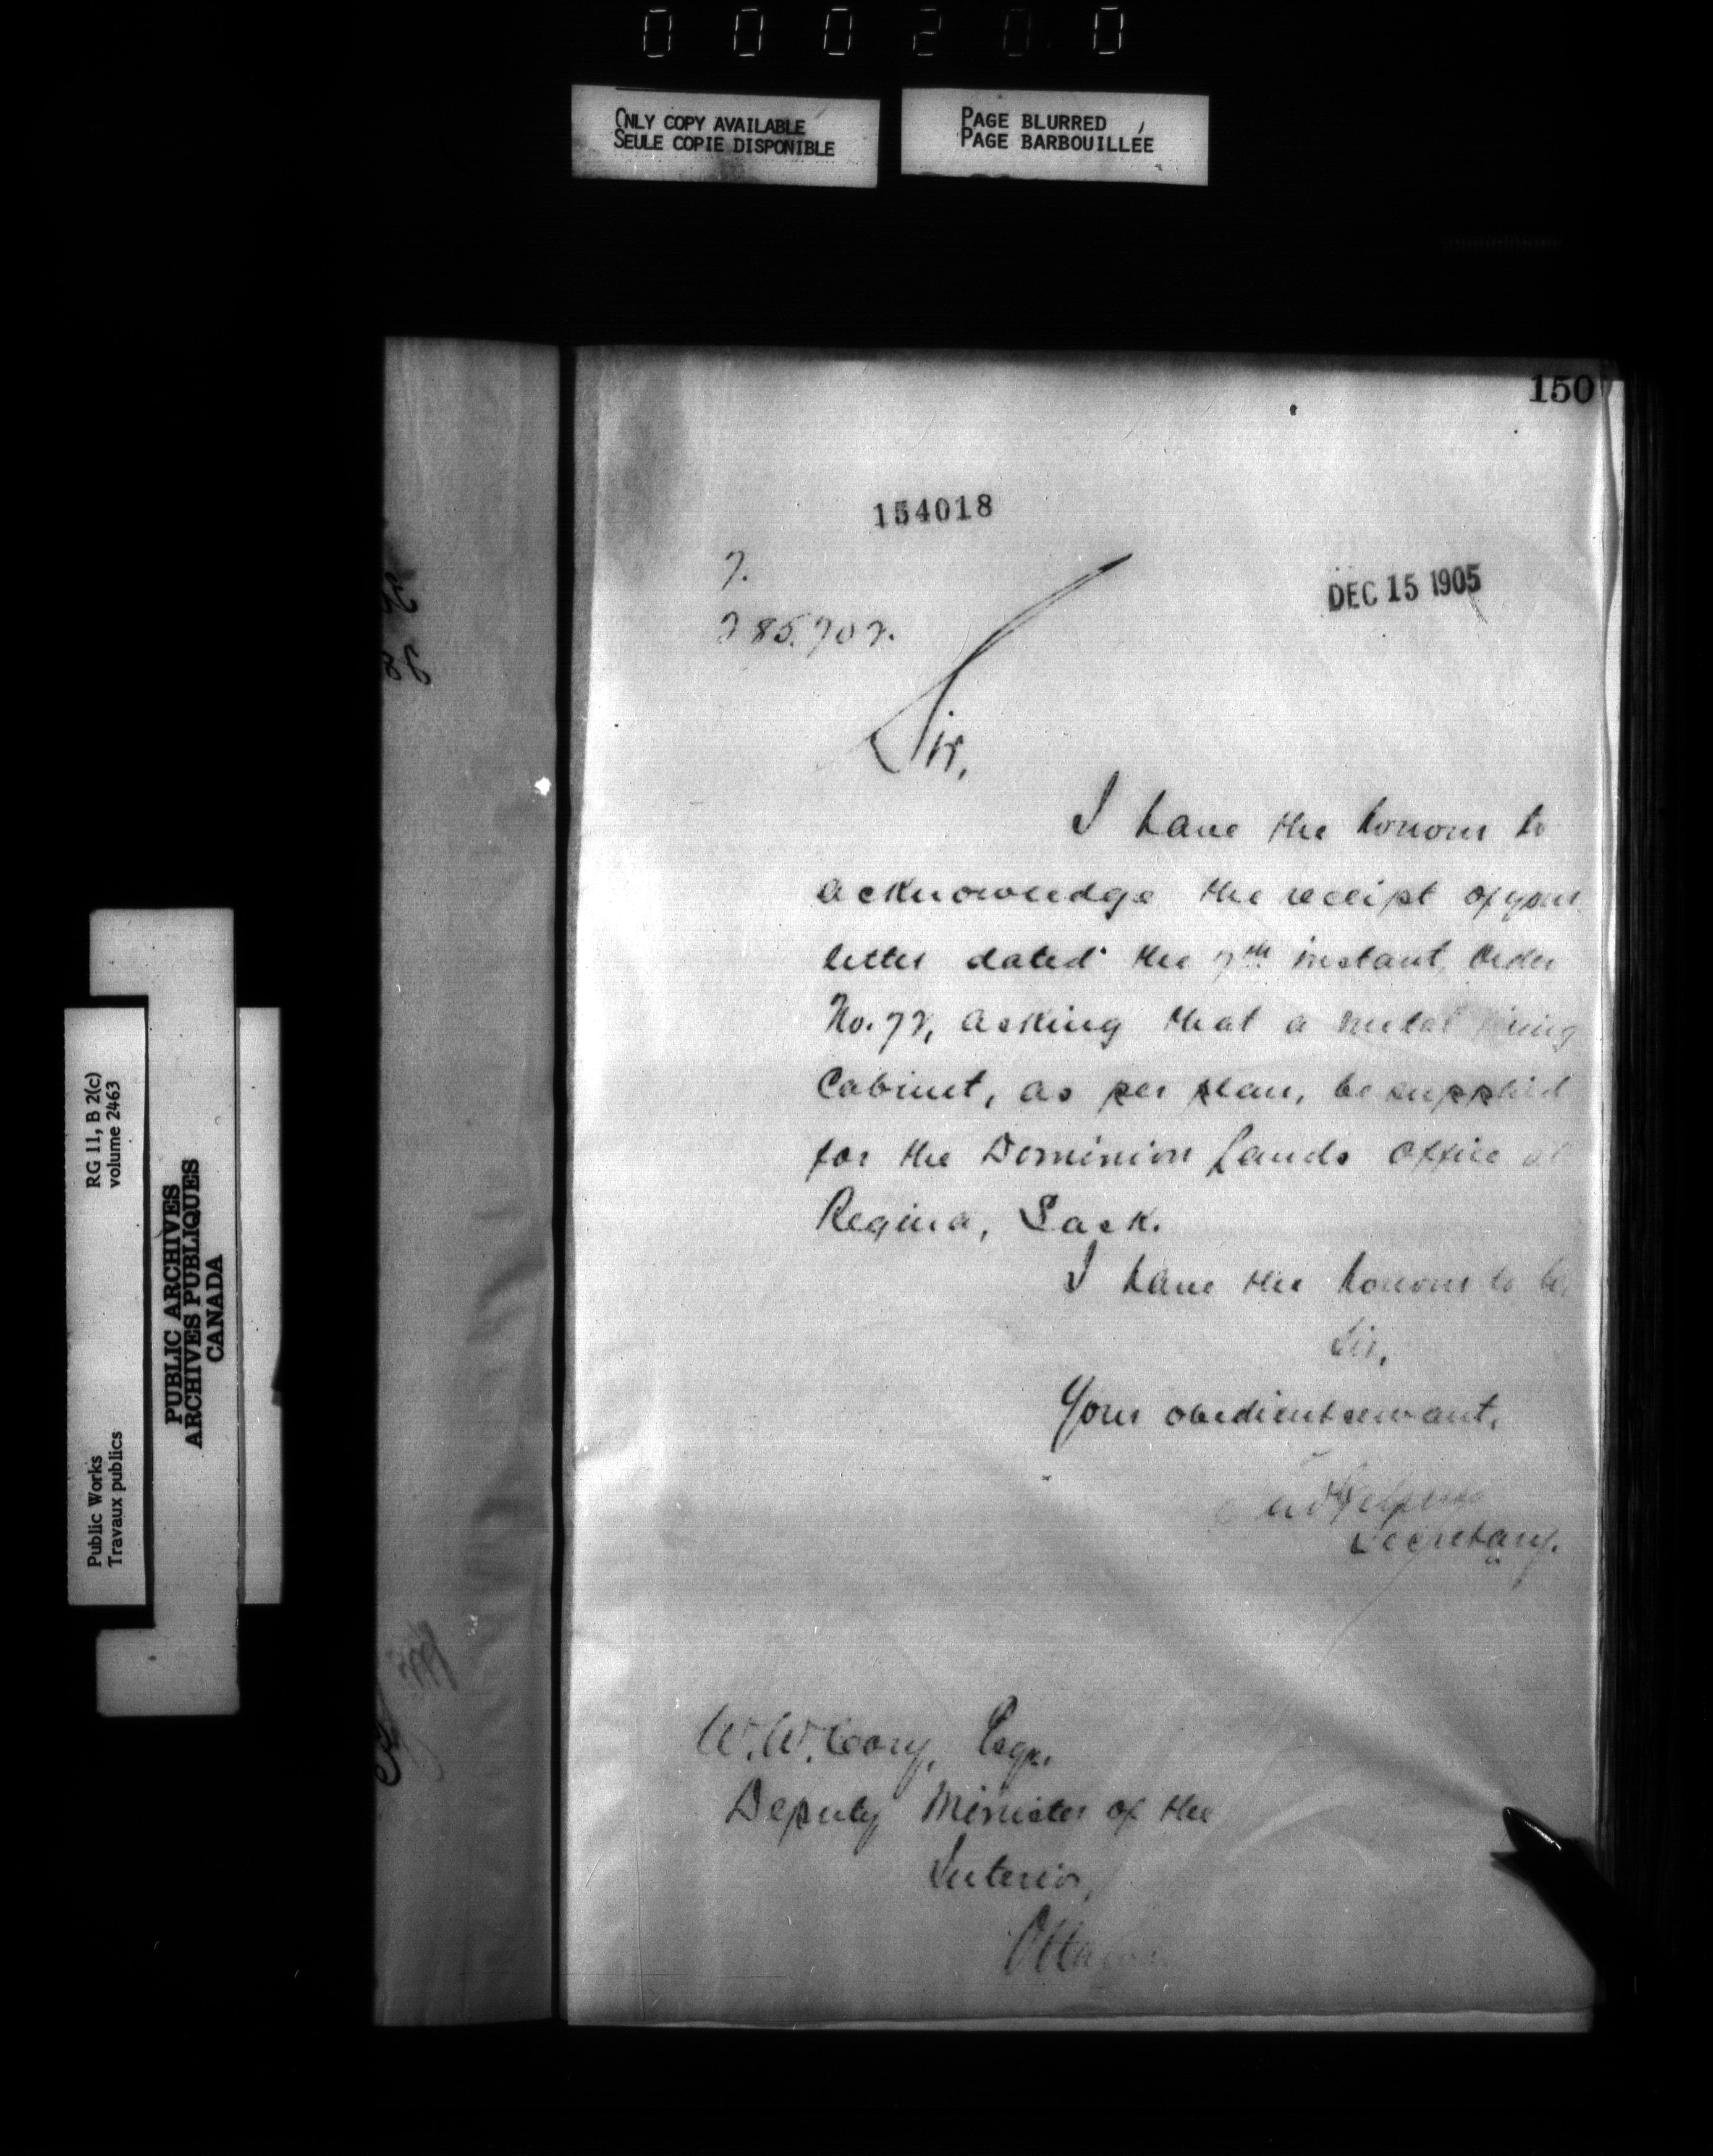 000200
ONLY COPY AVAILABLE
SEULE COPIE DISPONIBLE
PAGE BLURRED
PAGE BARBOUILLÉE
150
154018
DEC 15 1905
Sir,
I have the honour to
acknowledge the receipt of your
letter dated the 7th instant, Order
No. 72, asking that a metal filing
Cabinet, as per plan, be supplied
for the Dominion Lands Office at
Regina, Sask.
I have the honour to be,
Sir,
Your obedient servant,
Secretary.
W. W. Cory, Esqr.
Deputy Minister of the
Interior,
Ottawa
RG 11, B 2(c)
volume 2463
Public Works
Travaux publics
PUBLIC ARCHIVES
ARCHIVES PUBLIQUES
CANADA